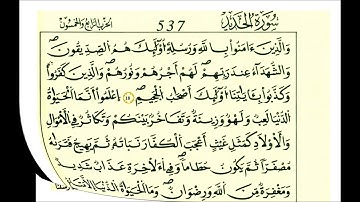 سُورَةُ الْحَدِيدِ 537 الحزب الرابع والخمسون
وَالَّذِينَ ءَامَنُوا بِاللَّهِ وَرُسُلِهِ أُوْلَٰئِكَ هُمُ الصِّدِّيقُونَ
وَالشُّهَدَآءُ عِندَ رَبِّهِمْ لَهُمْ أَجْرُهُمْ وَنُورُهُمْ وَالَّذِينَ كَفَرُوا
وَكَذَّبُوا بِـَٔايَٰتِنَآ أُوْلَٰئِكَ أَصْحَٰبُ الْجَحِيمِ ۝ اِعْلَمُوا أَنَّمَا الْحَيَوٰةُ
الدُّنْيَا لَعِبٌ وَلَهْوٌ وَزِينَةٌ وَتَفَاخُرٌ بَيْنَكُمْ وَتَكَاثُرٌ فِي الْأَمْوَٰلِ
وَالْأَوْلَٰدِ كَمَثَلِ غَيْثٍ أَعْجَبَ الْكُفَّارَ نَبَاتُهُ ثُمَّ يَهِيجُ فَتَرَىٰهُ
مُصْفَرًّا ثُمَّ يَكُونُ حُطَٰمًا وَفِي الْأَخِرَةِ عَذَابٌ شَدِيدٌ
وَمَغْفِرَةٌ مِّنَ اللَّهِ وَرِضْوَٰنٌ وَمَا الْحَيَوٰةُ الدُّنْيَا